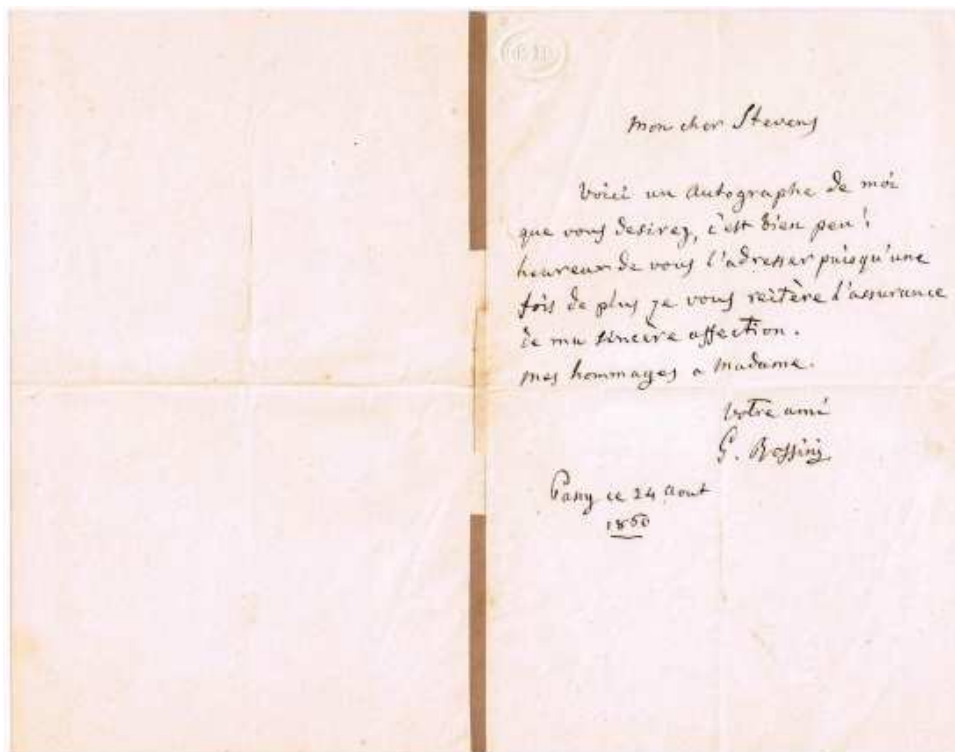 Mon cher Stevens
Voici un Autographe de moi
que vous desirez, c'est bien peu!
heureux de vous l'adresser puisqu'une
fois de plus je vous reitère l'assurance
de ma sincère affection.
mes hommages a Madame.
Votre ami
G. Rossini
Passy ce 24 Aout
1860